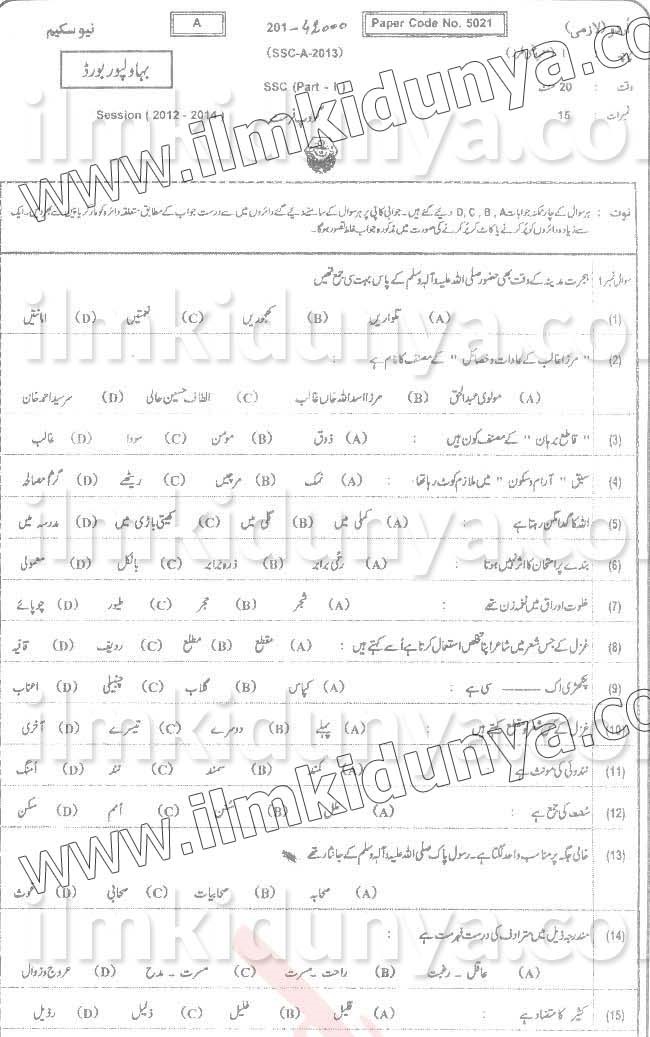 نیو سکیم A 201-42000 Paper Code No. 5021 اُردو (لازمی)
بہاولپور بورڈ (SSC-A-2013)
SSC (Part - I) وقت : 20
Session (2012 - 2014) گروپ نمبرات : 15
نوٹ : ہر سوال کے چار ممکنہ جوابات D, C, B, A دیے گئے ہیں۔ جوابی کاپی پر ہر سوال کے سامنے دیے گئے دائروں میں سے درست جواب کے مطابق متعلقہ دائرہ کو مارکر یا پین سے بھر دیں۔ ایک
سے زیادہ دائروں کو پُر کرنے یا کاٹ کر پُر کرنے کی صورت میں مذکورہ جواب غلط تصور ہو گا۔
سوال نمبر 1 ہجرت مدینہ کے وقت بھی حضور صلی اللہ علیہ وآلہ وسلم کے پاس بہت سی جمع تھیں
(1) (A) تلواریں (B) کھجوریں (C) نعمتیں (D) امانتیں
(2) " مرزا غالب کے عادات و خصائل " کے مصنف کا نام ہے
(A) مولوی عبدالحق (B) مرزا اسد اللہ خاں غالب (C) الطاف حسین حالی (D) سر سید احمد خان
(3) " قاطع برہان " کے مصنف کون ہیں : (A) ذوق (B) مومن (C) سودا (D) غالب
(4) سبق " آرام و سکون " میں ملازم کوٹ رہا تھا : (A) نمک (B) مرچیں (C) ریٹھے (D) گرم مصالحہ
(5) اللہ کا گدا مگن رہتا ہے : (A) کملی میں (B) گلی میں (C) کھیتی باڑی میں (D) مدرسہ میں
(6) بندے پر امتحان کا اثر نہیں ہوتا : (A) رتی برابر (B) ذرہ برابر (C) بالکل (D) معمولی
(7) خلوت اوراق میں نغمہ زن تھے : (A) شجر (B) حجر (C) طیور (D) چوپائے
(8) غزل کے جس شعر میں شاعر اپنا تخلص استعمال کرتا ہے اُسے کہتے ہیں : (A) مقطع (B) مطلع (C) ردیف (D) قافیہ
(9) پنکھڑی اک ——— سی ہے : (A) کپاس (B) گلاب (C) چنبیلی (D) اعناب
(10) غزل کے شعر کو مطلع کہتے ہیں (A) پہلے (B) دوسرے (C) تیسرے (D) آخری
(11) نندوئی کی مونث ہے (A) (B) سمند (C) نند (D) اُمنگ
(12) سُنت کی جمع ہے : (A) (B) سُنن (C) اُمم (D) سکن
(13) خالی جگہ پر مناسب واحد لگتا ہے۔ رسول پاک صلی اللہ علیہ وآلہ وسلم کے جانثار تھے
(A) صحابہ (B) صحابیات (C) صحابی (D) غوث
(14) مندرجہ ذیل میں مترادف کی درست فہرست ہے :
(A) عاقل - رغبت (B) راحت - مسرت (C) مسرت - مدح (D) عروج و زوال
(15) کثیر کا متضاد ہے : (A) قلیل (B) خلیل (C) ذلیل (D) رذیل
www.ilmkidunya.com
www.ilmkidunya.com